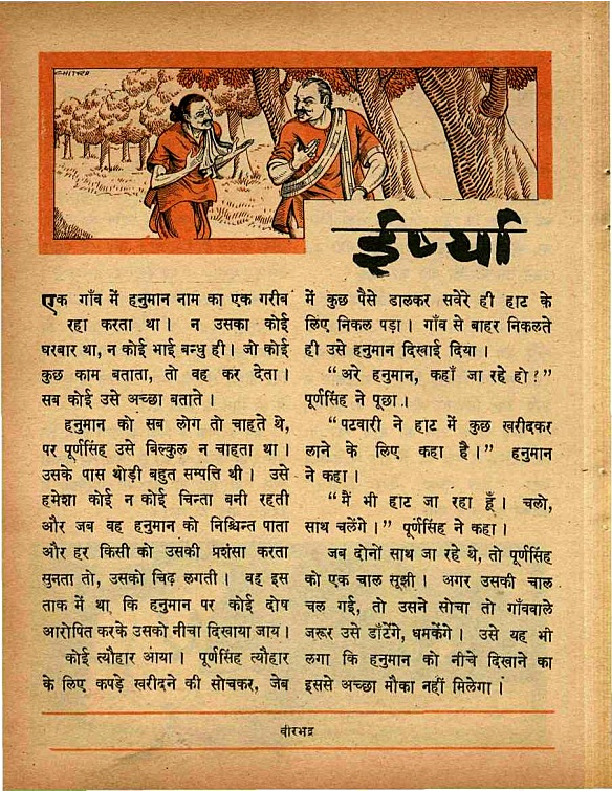 CHITRA
ईर्ष्या
एक गाँव में हनुमान नाम का एक गरीब
रहा करता था। न उसका कोई
घरबार था, न कोई भाई बन्धु ही। जो कोई
कुछ काम बताता, तो वह कर देता।
सब कोई उसे अच्छा बताते।
हनुमान को सब लोग तो चाहते थे,
पर पूर्णसिंह उसे बिल्कुल न चाहता था।
उसके पास थोड़ी बहुत सम्पत्ति थी। उसे
हमेशा कोई न कोई चिन्ता बनी रहती
और जब वह हनुमान को निश्चिन्त पाता
और हर किसी को उसकी प्रशंसा करता
सुनता तो, उसको चिढ़ लगती। वह इस
ताक में था कि हनुमान पर कोई दोष
आरोपित करके उसको नीचा दिखाया जाय।
कोई त्यौहार आया। पूर्णसिंह त्यौहार
के लिए कपड़े खरीदने की सोचकर, जेब
में कुछ पैसे डालकर सवेरे ही हाट के
लिए निकल पड़ा। गाँव से बाहर निकलते
ही उसे हनुमान दिखाई दिया।
“अरे हनुमान, कहाँ जा रहे हो?”
पूर्णसिंह ने पूछा।
“पटवारी ने हाट में कुछ खरीदकर
लाने के लिए कहा है।” हनुमान
ने कहा।
“मैं भी हाट जा रहा हूँ। चलो,
साथ चलेंगे।” पूर्णसिंह ने कहा।
जब दोनों साथ जा रहे थे, तो पूर्णसिंह
को एक चाल सूझी। अगर उसकी चाल
चल गई, तो उसने सोचा तो गाँववाले
जरूर उसे डाँटेंगे, धमकेंगे। उसे यह भी
लगा कि हनुमान को नीचे दिखाने का
इससे अच्छा मौका नहीं मिलेगा।
वीरभद्र